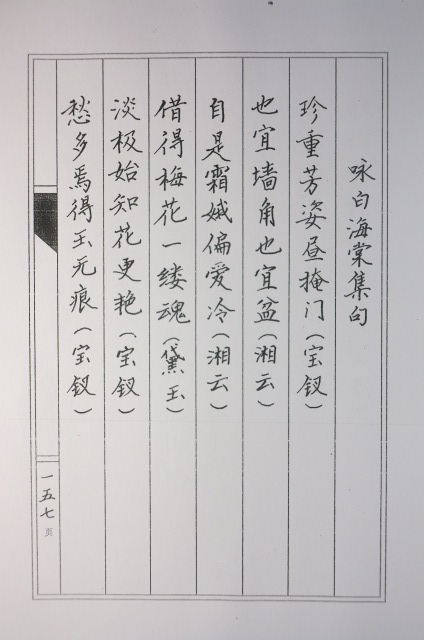 咏白海棠集句
珍重芳姿昼掩门（宝钗）
也宜墙角也宜盆（湘云）
自是霜娥偏爱冷（湘云）
借得梅花一缕魂（黛玉）
淡极始知花更艳（宝钗）
愁多焉得玉无痕（宝钗）
一五七页